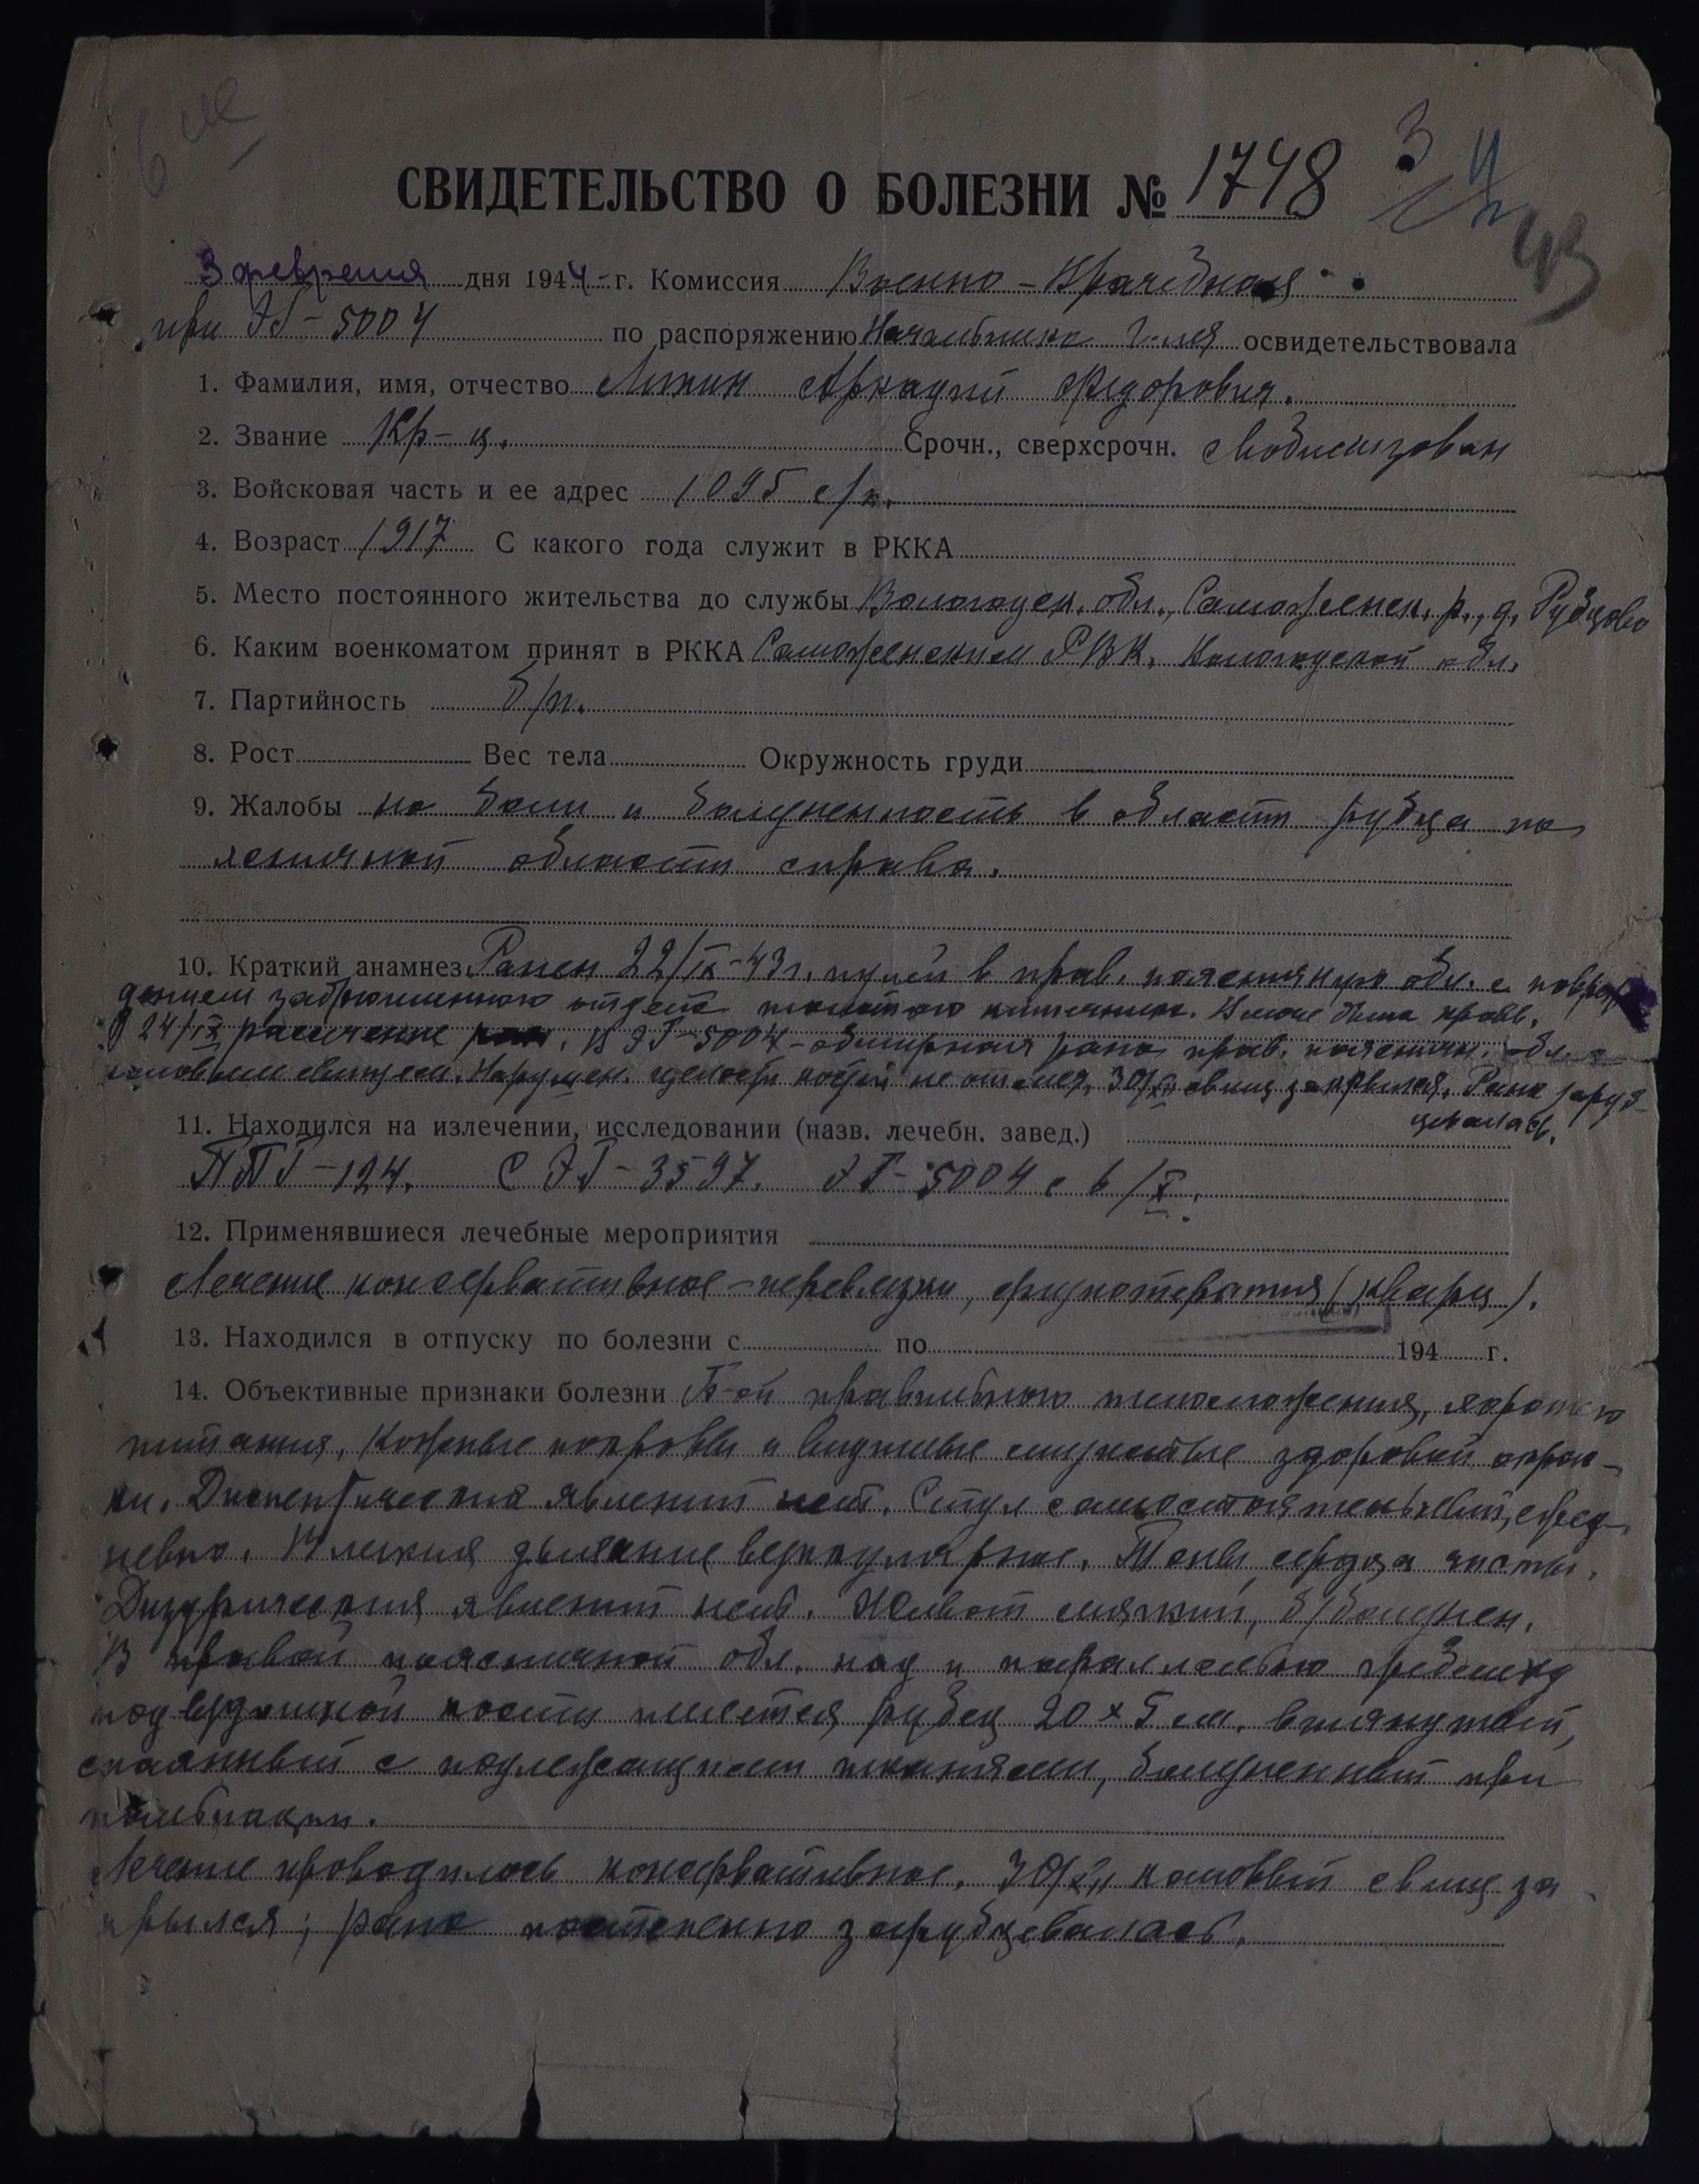 СВИДЕТЕЛЬСТВО О БОЛЕЗНИ № 1748
43
3 февраля дня 1944 г. Комиссия Военно-Врачебная
при ЭГ-5004 по распоряжению Начальника г-ля освидетельствовала
1. Фамилия, имя, отчество Аркадий Федорович.
2. Звание Кр-ц. Срочн., сверхсрочн. мобилизован
3. Войсковая часть и ее адрес 1095 с/п.
4. Возраст 1917 С какого года служит в РККА
5. Место постоянного жительства до службы Вологодск. обл., р., д. Рубцово
6. Каким военкоматом принят в РККА РВК. Вологодской обл.
7. Партийность б/п.
8. Рост Вес тела Окружность груди
9. Жалобы на боли и болезненность в области рубца по
ясничной области справа.
10. Краткий анамнез Ранен 22/IX-43 г. пулей в прав. поясничную обл. с повреж
дением забрюшинного отдела толстого кишечника. В моче была кровь.
24/IX рассечение ран. В ЭГ-5004 - обширная рана прав. пояснич. обл. с
каловым свищем. Нарушен. целости костей не отмеч. 30/XII свищ закрылся. Рана заруб-
цевалась.
11. Находился на излечении, исследовании (назв. лечебн. завед.)
ППГ-124. СЭГ-3597. ЭГ-5004 с 6/X.
12. Применявшиеся лечебные мероприятия
Лечение консервативное - перевязки, физиотерапия (кварц).
13. Находился в отпуску по болезни с по 194 г.
14. Объективные признаки болезни Б-ой правильного телосложения, хорошего
питания. Кожные покровы и видимые слизистые здоровой окрас-
ки. Диспептических явлений нет. Стул самостоятельный, ежед-
невно. В легких дыхание везикулярное. Тоны сердца чисты.
Дизурических явлений нет. Живот мягкий, б/болезнен.
В правой поясничной обл. над и параллельно гребешку
подвздошной кости имеется рубец 20 x 5 см. втянутый,
спаянный с подлежащими тканями, болезненный при
пальпации.
Лечение проводилось консервативное. 30/XII каловый свищ за
крылся; рана постепенно зарубцевалась.